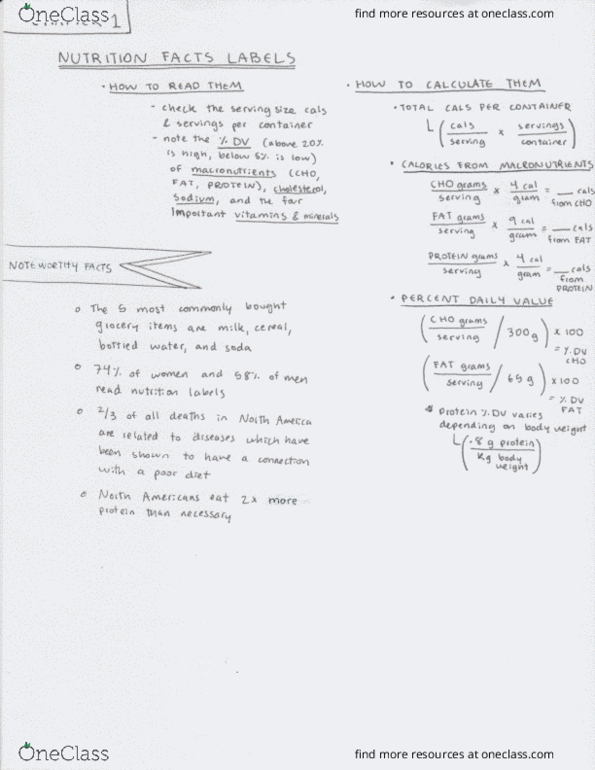 OneClass
find more resources at oneclass.com
1
NUTRITION FACTS LABELS
• HOW TO READ THEM
- check the serving size cals
& servings per container
- note the % DV (above 20%
is high, below 5% is low)
of macronutrients (CHO,
FAT, PROTEIN), cholesterol,
sodium, and the four
important vitamins & minerals
NOTEWORTHY FACTS
o The 5 most commonly bought
grocery items are milk, cereal,
bottled water, and soda
o 74% of women and 58% of men
read nutrition labels
o 2/3 of all deaths in North America
are related to diseases which have
been shown to have a connection
with a poor diet
o North Americans eat 2x more
protein than necessary
• HOW TO CALCULATE THEM
• TOTAL CALS PER CONTAINER
L (cals/serving x servings/container)
• CALORIES FROM MACRONUTRIENTS
CHO grams/serving x 4 cal/gram = __ cals from CHO
FAT grams/serving x 9 cal/gram = __ cals from FAT
PROTEIN grams/serving x 4 cal/gram = __ cals from PROTEIN
• PERCENT DAILY VALUE
(CHO grams/serving / 300g) x 100 = % DV CHO
(FAT grams/serving / 65g) x 100 = % DV FAT
* Protein % DV varies
depending on body weight
L (.8 g protein/Kg body weight)
OneClass
find more resources at oneclass.com